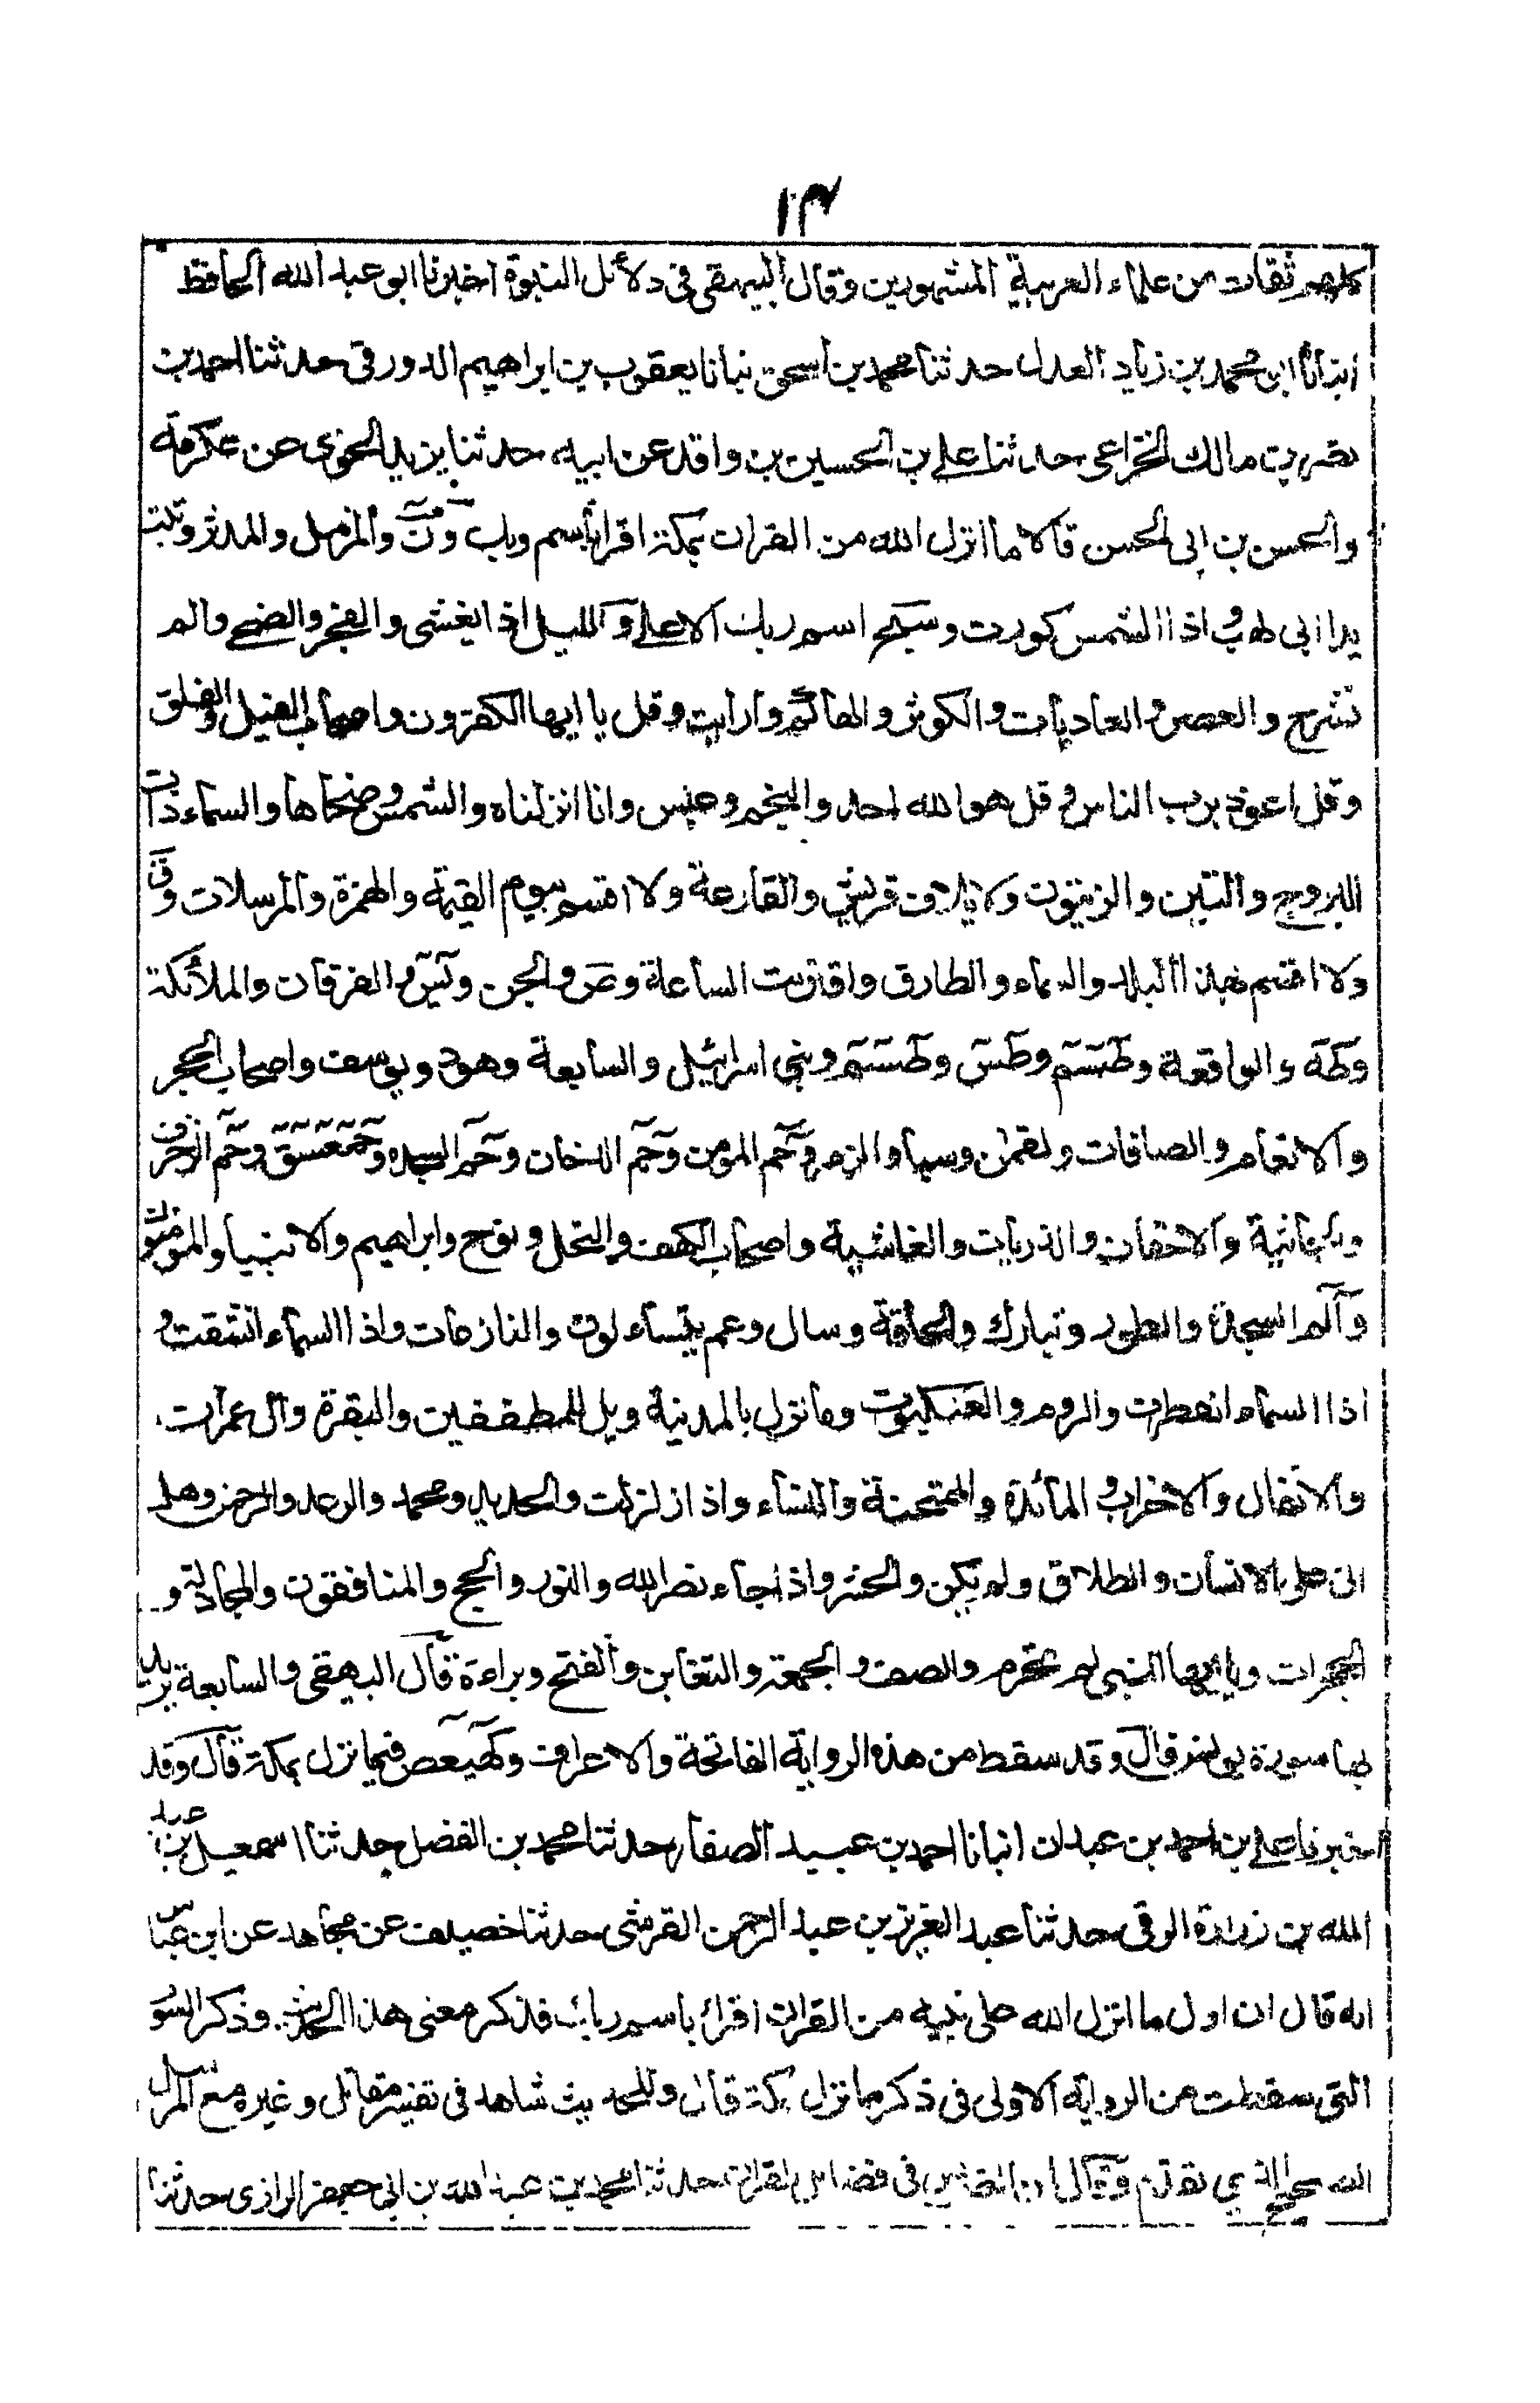 ١٣
كلهم ثقات من علماء العربية المشهورين وقال البيهقى فى دلائل النبوة اخبرنا ابو عبد الله الحافظ
انبانا ابو محمد بن زياد العدل حدثنا محمد بن اسحق نبانا يعقوب بن ابراهيم الدورقى حدثنا احمد بن
نصر بن مالك الخزاعى حدثنا على بن الحسين بن واقد عن ابيه حدثنا يزيد النحوى عن عكرمة
والحسن بن ابى الحسن قالا ما انزل الله من القران بمكة اقرا باسم وبك ون والمزمل والمدثر وتبت
يدا ابى لهب و اذا الشمس كورت وسبح اسم ربك الاعلى و الليل اذا يغشى والفجر والضحى والم
نشرح والعصر والعاديات والكوثر والهاكم وارايت وقل يا ايها الكفرون واصحاب الفيل والفلق
وقل اعوذ برب الناس و قل هو الله احد والنجم وعبس وانا انزلناه والشمس وضحاها والسماء ذات
البروج والتين والزيتون ولايلاف قريش والقارعة ولا اقسم بيوم القيمة والهمزة والمرسلات وق
ولا اقسم بهذا البلد والسماء والطارق واقتربت الساعة وص والجن ويس والفرقان والملائكة
وطه والواقعة وطسم وطس وطسم وبنى اسرائيل والسابعة وهود ويوسف واصحاب الحجر
والانعام والصافات ولقمن وسبا والزمر وحم المومن وحم الدخان وحم السجده وحمعسق وحم الزخرف
والجاثية والاحقاف والذريات والغاشية واصحاب الكهف والنحل ونوح وابراهيم والانبيا والمومنون
والم السجدة والطور وتبارك والحاقة وسال وعم يتساءلون والنازعات واذا السماء انشقت و
اذا السماء انفطرت والروم والعنكبوت وما نزل بالمدنية ويل للمطففين والبقرة وال عمران
والانفال والاحزاب و المائدة والممتحنة والنساء واذا زلزلت والحديد ومحمد والرعد والرحمن وهل
اتى على الانسان والطلاق ولم يكن والحشر واذا جاء نصر الله والنور والحج والمنافقون والمجادلة و
الحجرات ويا ايها النبى لم تحرم والصف والجمعة والتغابن والفتح وبراءة قال البيهقى والسابعة يريد
بها سورة يونس قال وقد سقط من هذه الرواية الفاتحة والاعراف وكهيعص فيما نزل بمكة قال وقد
اخبرنا على بن احمد بن عبدان انبانا احمد بن عبيد الصفار حدثنا محمد بن الفضل حدثنا اسمعيل بن عبد
الله بن زرارة الرقى حدثنا عبد العزيز بن عبد الرحمن القرشى حدثنا خصيف عن مجاهد عن ابن عباس
انه قال ان اول ما انزل الله على نبيه من القران اقرا باسم ربك فذكر معنى هذا الحديث وذكر السو
التى سقطت من الرواية الاولى فى ذكر ما نزل بمكة قال وللحديث شاهد فى تفسير مقاتل وغيره مع المرسل
الصحيح الذى تقدم وقال ابن الضريس فى فضائل القران حدثنا محمد بن عبد الله بن ابى جعفر الرازى حدثنا